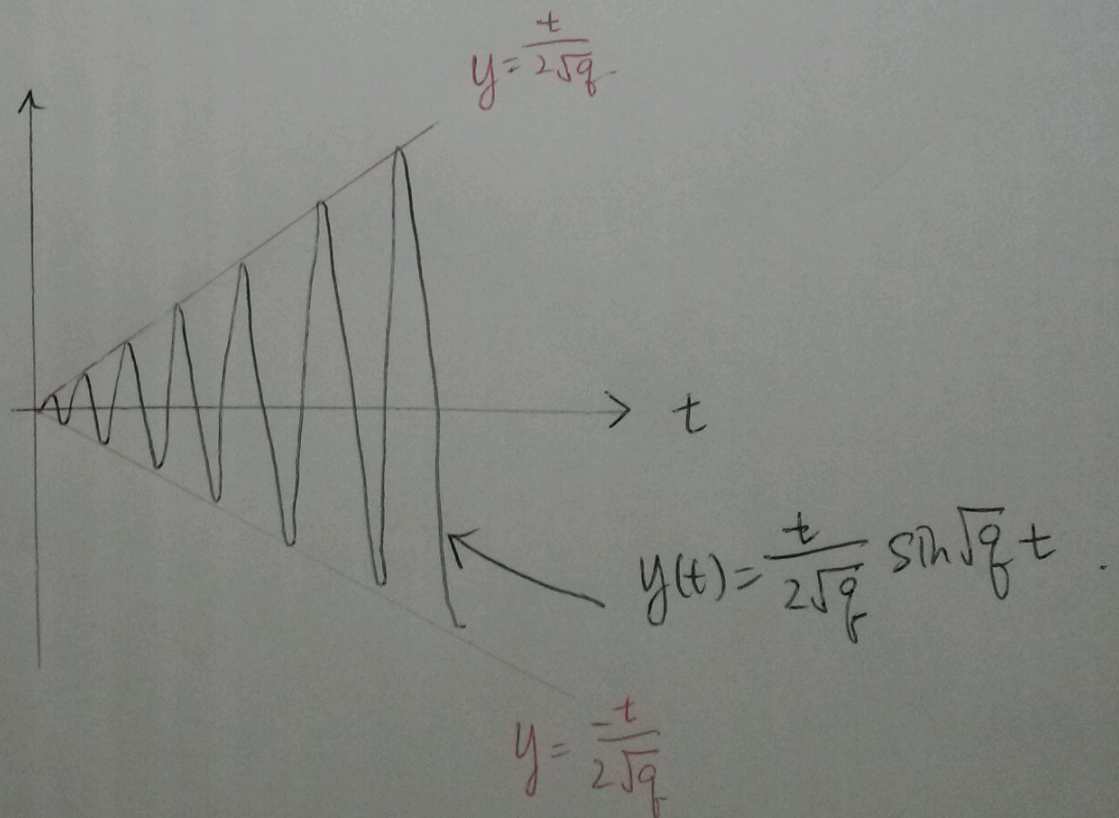 y = t/(2√q)
t
y(t) = t/(2√q) sin√q t .
y = -t/(2√q)